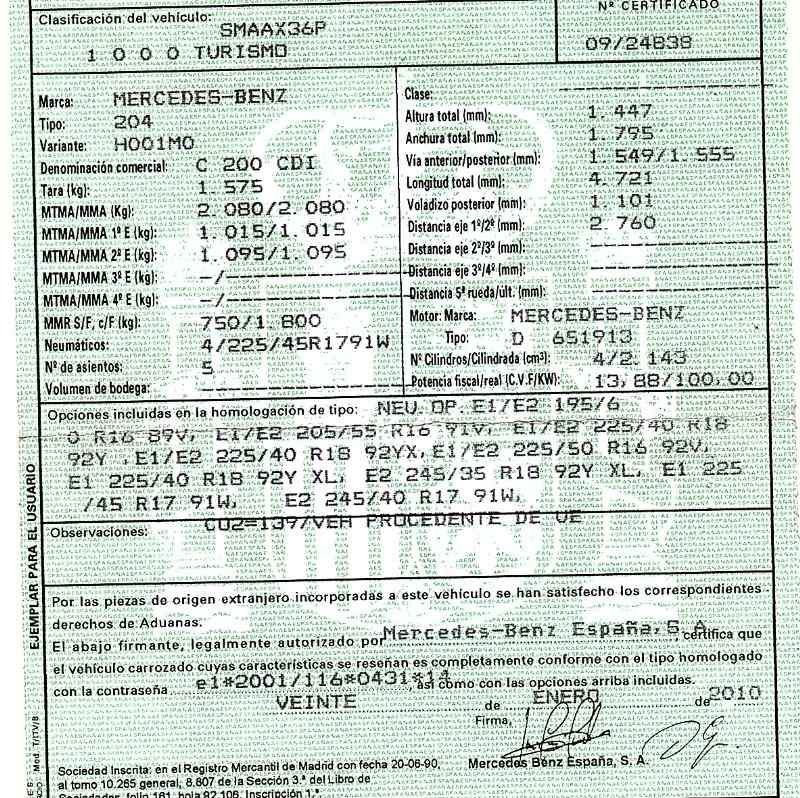 Clasificación del vehículo:
SMAAX36P
1 0 0 0 TURISMO
Nº CERTIFICADO
09/24838
Marca: MERCEDES-BENZ
Tipo: 204
Variante: H001M0
Denominación comercial: C 200 CDI
Tara (kg): 1.575
MTMA/MMA (Kg): 2.080/2.080
MTMA/MMA 1º E (kg): 1.015/1.015
MTMA/MMA 2º E (kg): 1.095/1.095
MTMA/MMA 3º E (kg): -/----------
MTMA/MMA 4º E (kg): -/----------
MMR S/F, c/F (kg): 750/1.800
Neumáticos: 4/225/45R1791W
Nº de asientos: 5
Volumen de bodega: ----------
Clase: ----------
Altura total (mm): 1.447
Anchura total (mm): 1.795
Vía anterior/posterior (mm): 1.549/1.555
Longitud total (mm): 4.721
Voladizo posterior (mm): 1.101
Distancia eje 1º/2º (mm): 2.760
Distancia eje 2º/3º (mm): ----------
Distancia eje 3º/4º (mm): ----------
Distancia 5ª rueda/últ. (mm): ----------
Motor: Marca: MERCEDES-BENZ
Tipo: D 651913
Nº Cilindros/Cilindrada (cm³): 4/2.143
Potencia fiscal/real (C.V.F/KW): 13,88/100,00
Opciones incluidas en la homologación de tipo: NEU OP E1/E2 195/6
0 R16 89V, E1/E2 205/55 R16 91V, E1/E2 225/40 R18
92Y ,E1/E2 225/40 R18 92YX,E1/E2 225/50 R16 92V,
E1 225/40 R18 92Y XL, E2 245/35 R18 92Y XL, E1 225
/45 R17 91W, E2 245/40 R17 91W,
Observaciones: CO2=139/VEH PROCEDENTE DE UE
Por las piezas de origen extranjero incorporadas a este vehículo se han satisfecho los correspondientes
derechos de Aduanas.
El abajo firmante, legalmente autorizado por Mercedes-Benz España,S.A. certifica que
el vehículo carrozado cuyas características se reseñan es completamente conforme con el tipo homologado
con la contraseña e1*2001/116*0431*14, así como con las opciones arriba incluidas.
VEINTE de ENERO de 2010
Firma,
Mercedes Benz España, S. A.
Sociedad Inscrita: en el Registro Mercantil de Madrid con fecha 20-06-90,
al tomo 10.265 general; 8.807 de la Sección 3.ª del Libro de
Sociedades, folio 161, hoja 92.106, Inscripción 1.ª
EJEMPLAR PARA EL USUARIO
Mod. T/ITV/B